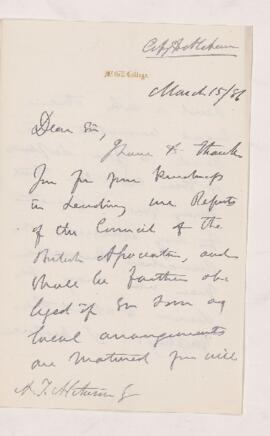 McGill College.
March 15/86
Dear Sir,
I have to thank
you for your kindness
in sending me Reports
of the Council of the
British Association, and
shall be further obliged
if so soon as
local arrangements
are matured you will